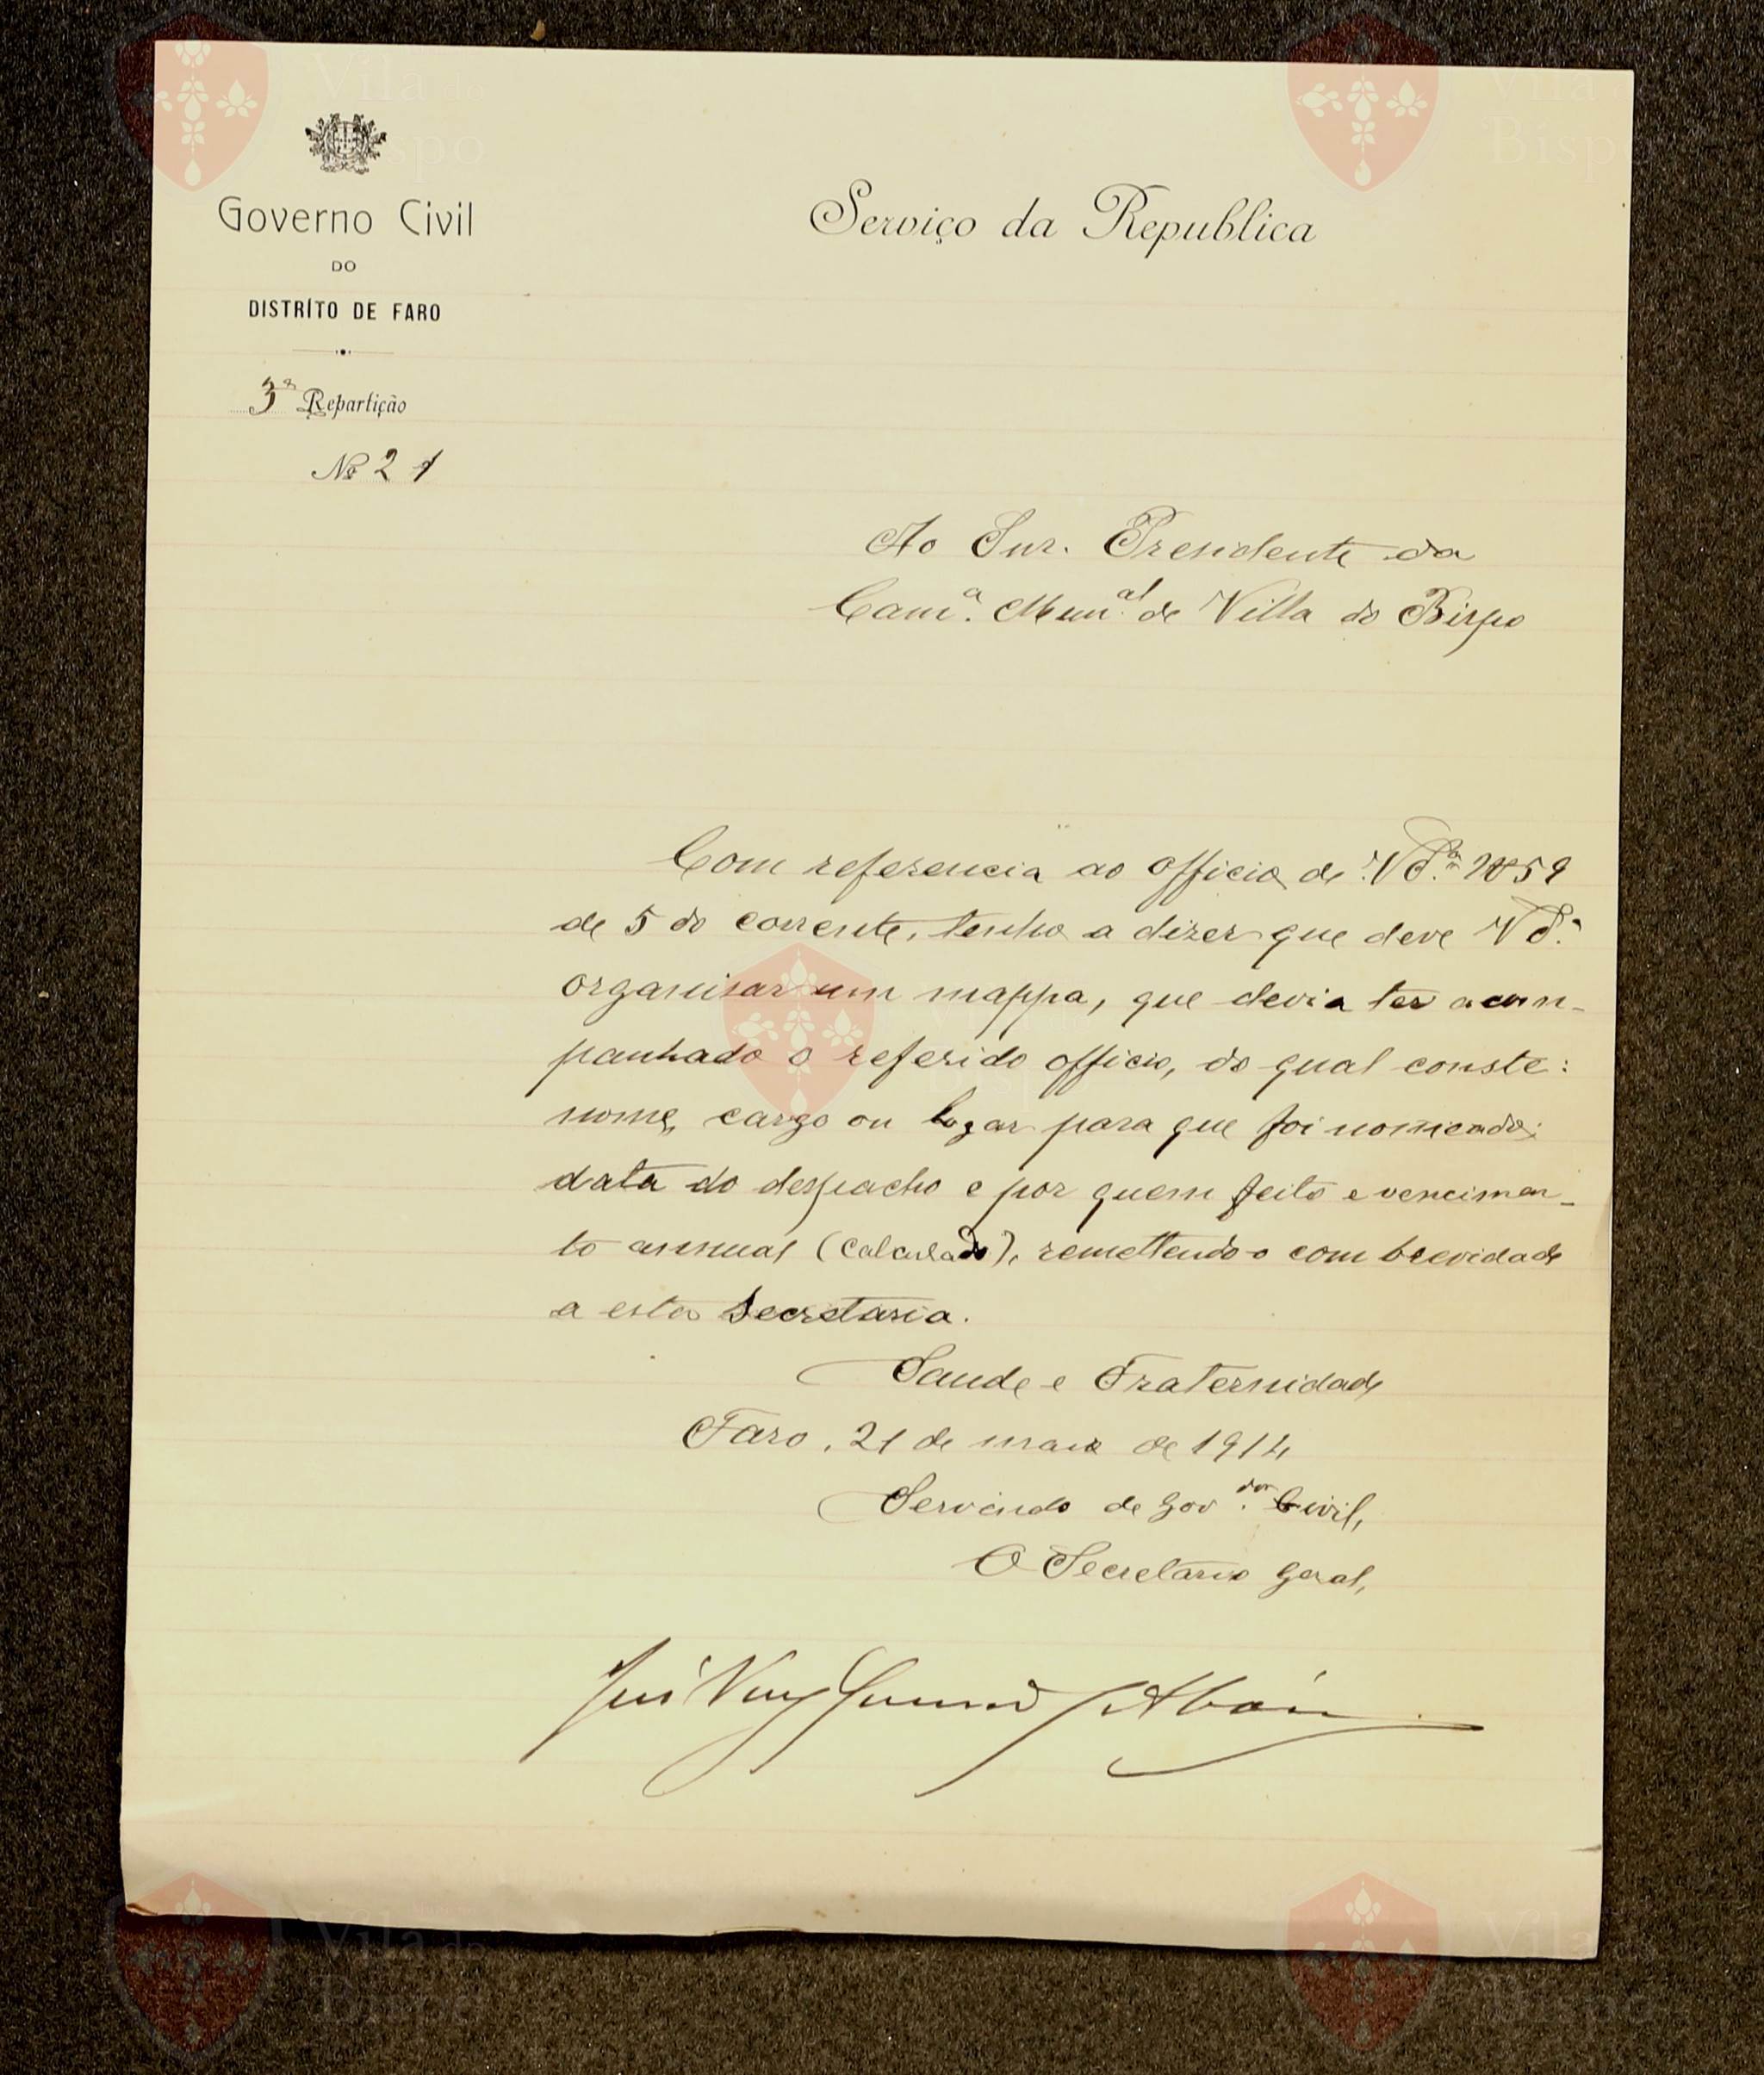 Governo Civil
DO
DISTRÍTO DE FARO
3ª Repartição
Nº 21
Serviço da Republica
Ao Snr. Presidente da
Camª. Munal. de Villa do Bispo
Com referencia ao officio de
de 5 do corrente, tenho a dizer que deve
organisar um mappa, que devia ter acom-
panhado o referido officio, do qual conste:
nome, cargo ou logar para que foi nomeado;
data do despacho e por quem feito e vencimen-
to annual (calculado), remettendo-o com brevidade
a esta Secretaria.
Saude e Fraternidade
Faro, 21 de maio de 1914
Servindo de Govdor. Civil,
O Secretario Geral,
Vila do
Bispo
Vila do
Bispo
Vila do
Bispo
Vila do
Bispo